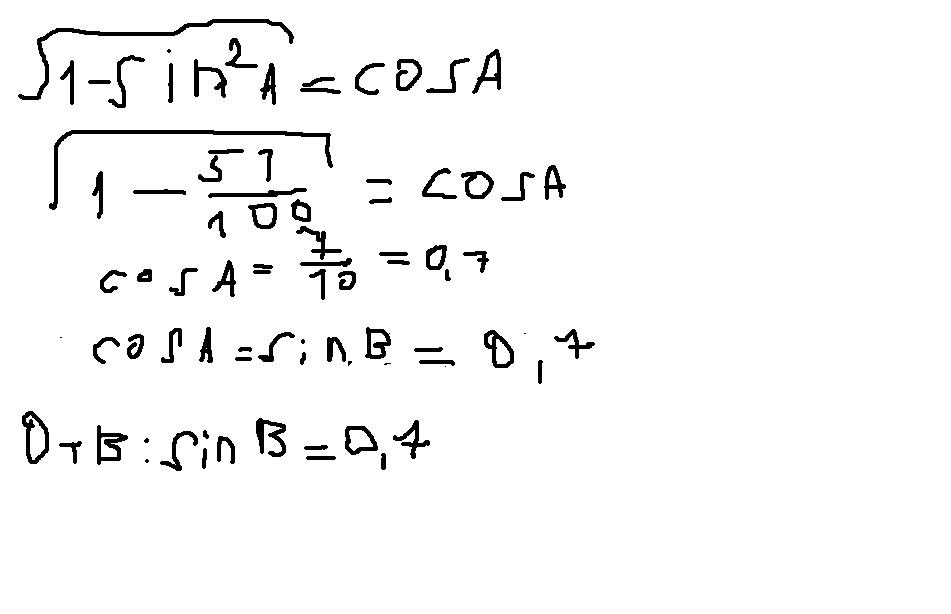 √1-sin²A = cosA
√1 - 51/100 = cosA
cosA = 7/10 = 0,7
cosA = sinB = 0,7
OTB: sinB = 0,7